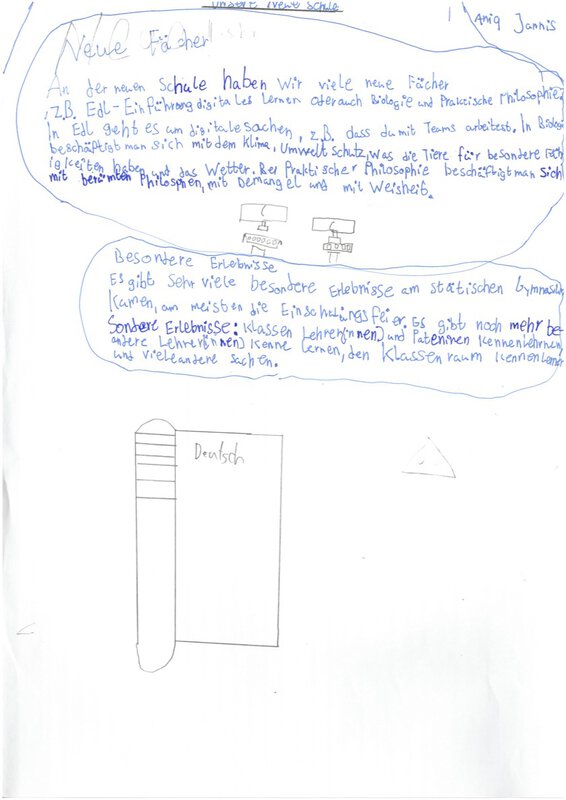 Unsere Neue Schule
Aniq Jannis
Neue Fächer
An der neuen Schule haben Wir viele neue Fächer
z.B. Edl-Einführung digitales Lernen oder auch Biologie und Praktische Philosophie.
In Edl geht es um digitale sachen, z.B. dass du mit Teams arbeitest. In Biologi
beschäftigt man sich mit dem Klima, Umwelt Schutz, was die Tiere für besondere Fäh
igkeiten haben und das Wetter. Bei Praktischer Philosophie beschäftigt man sich
mit berümten Philosphen, mit Demangel und mit Weisheit.
Besondere Erlebnisse
Es gibt Sehr viele besondere Erlebnisse am stätischen Gymnasium
Kamen, am meisten die Einschulungsfeier. Es gibt noch mehr be-
sondere Erlebnisse: Klassen Lehrer(innen) und Pateninen Kennenlehrnen,
andere Lehrer(innen) Kenne lernen, den Klassen raum Kennenlernen
und viele andere sachen.
Deutsch